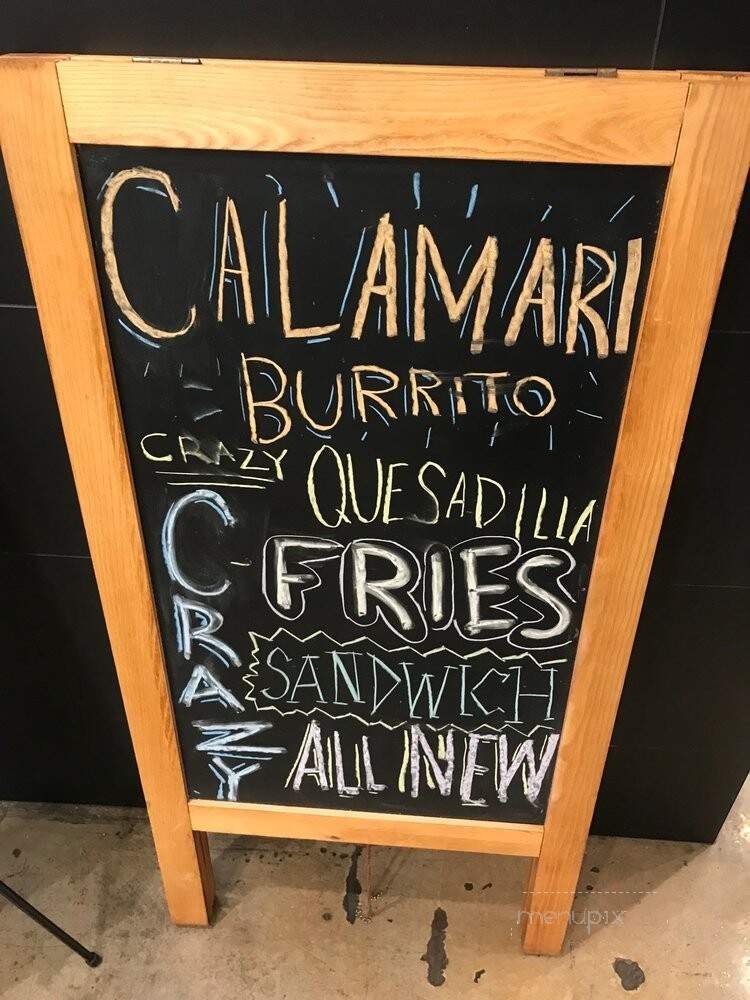 CALAMARI
BURRITO
CRAZY QUESADILLA
CRAZY
FRIES
SANDWICH
ALL NEW
menupix